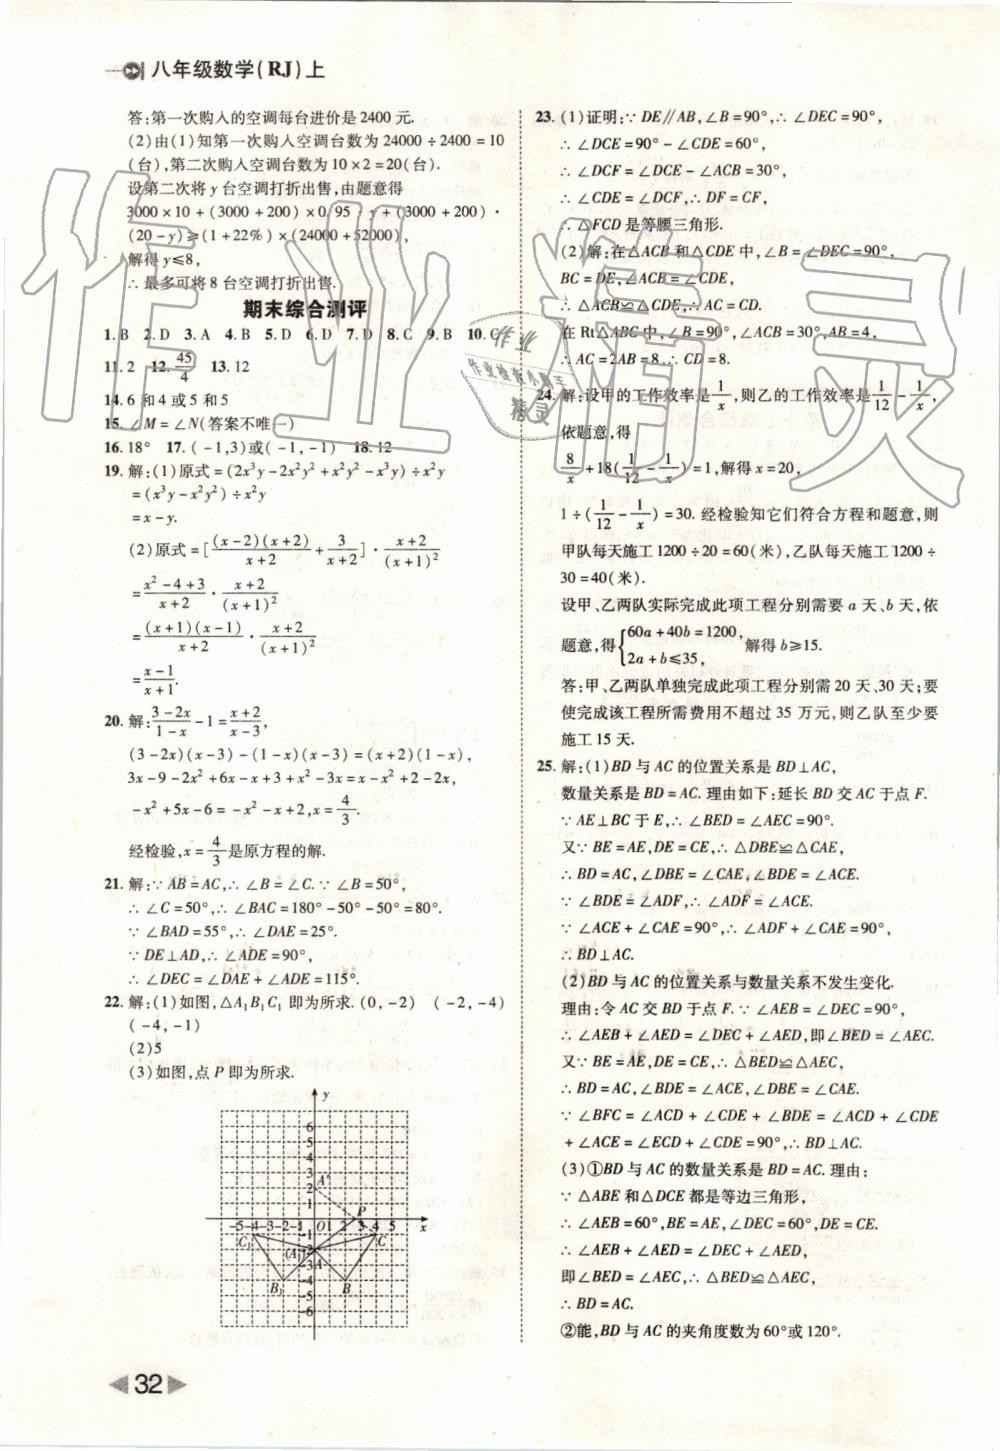 八年级数学(RJ)上
答:第一次购入的空调每台进价是2400元.
(2)由(1)知第一次购入空调台数为24000÷2400=10
(台),第二次购入空调台数为10×2=20(台).
设第二次将y台空调打折出售,由题意得
3000×10+(3000+200)×0.95·y+(3000+200)·
(20-y)≥(1+22%)×(24000+52000),
解得y≤8,
∴最多可将8台空调打折出售.
期末综合测评
1.B 2.D 3.A 4.B 5.D 6.D 7.D 8.C 9.B 10.C
11.2 12.45/4 13.12
14.6和4或5和5
15.∠M=∠N(答案不唯一)
16.18° 17.(-1,3)或(-1,-1) 18.12
19.解:(1)原式=(2x³y-2x²y²+x²y²-x³y)÷x²y
=(x³y-x²y²)÷x²y
=x-y.
(2)原式=[(x-2)(x+2)/(x+2)+3/(x+2)]·(x+2)/(x+1)²
=(x²-4+3)/(x+2)·(x+2)/(x+1)²
=(x+1)(x-1)/(x+2)·(x+2)/(x+1)²
=(x-1)/(x+1).
20.解:(3-2x)/(1-x)-1=(x+2)/(x-3),
(3-2x)(x-3)-(1-x)(x-3)=(x+2)(1-x),
3x-9-2x²+6x-x+3+x²-3x=x-x²+2-2x,
-x²+5x-6=-x²-x+2,x=4/3.
经检验,x=4/3是原方程的解.
21.解:∵AB=AC,∴∠B=∠C.∵∠B=50°,
∴∠C=50°,∴∠BAC=180°-50°-50°=80°.
∵∠BAD=55°,∴∠DAE=25°.
∵DE⊥AD,∴∠ADE=90°,
∴∠DEC=∠DAE+∠ADE=115°.
22.解:(1)如图,△A₁B₁C₁即为所求.(0,-2) (-2,-4)
(-4,-1)
(2)5
(3)如图,点P即为所求.
y
6
5
4
3
2
1
A'
P
-5-4-3-2-1 O 1 2 3 4 5 x
-1
-2
-3
-4
-5
-6
C₁
(A₁)
A
C
B₁
B
32
23.(1)证明:∵DE∥AB,∠B=90°,∴∠DEC=90°,
∴∠DCE=90°-∠CDE=60°,
∴∠DCF=∠DCE-∠ACB=30°,
∴∠CDE=∠DCF,∴DF=CF,
∴△FCD是等腰三角形.
(2)解:在△ACB和△CDE中,∠B=∠DEC=90°,
BC=DE,∠ACB=∠CDE,
∴△ACB≌△CDE,∴AC=CD.
在Rt△ABC中,∠B=90°,∠ACB=30°,AB=4,
∴AC=2AB=8.∴CD=8.
24.解:设甲的工作效率是1/x,则乙的工作效率是1/12-1/x,
依题意,得
8/x+18(1/12-1/x)=1,解得x=20,
1÷(1/12-1/x)=30.经检验知它们符合方程和题意,则
甲队每天施工1200÷20=60(米),乙队每天施工1200÷
30=40(米).
设甲、乙两队实际完成此项工程分别需要a天、b天,依
题意,得{60a+40b=1200, 2a+b≤35, 解得b≥15.
答:甲、乙两队单独完成此项工程分别需20天、30天;要
使完成该工程所需费用不超过35万元,则乙队至少要
施工15天.
25.解:(1)BD与AC的位置关系是BD⊥AC,
数量关系是BD=AC.理由如下:延长BD交AC于点F.
∵AE⊥BC于E,∴∠BED=∠AEC=90°.
又∵BE=AE,DE=CE,∴△DBE≌△CAE,
∴BD=AC,∠DBE=∠CAE,∠BDE=∠ACE.
∵∠BDE=∠ADF,∴∠ADF=∠ACE.
∵∠ACE+∠CAE=90°,∴∠ADF+∠CAE=90°,
∴BD⊥AC.
(2)BD与AC的位置关系与数量关系不发生变化.
理由:令AC交BD于点F.∵∠AEB=∠DEC=90°,
∴∠AEB+∠AED=∠DEC+∠AED,即∠BED=∠AEC.
又∵BE=AE,DE=CE,∴△BED≌△AEC,
∴BD=AC,∠BDE=∠ACE,∠DBE=∠CAE.
∵∠BFC=∠ACD+∠CDE+∠BDE=∠ACD+∠CDE
+∠ACE=∠ECD+∠CDE=90°,∴BD⊥AC.
(3)①BD与AC的数量关系是BD=AC.理由:
∵△ABE和△DCE都是等边三角形,
∴∠AEB=60°,BE=AE,∠DEC=60°,DE=CE.
∴∠AEB+∠AED=∠DEC+∠AED,
即∠BED=∠AEC,∴△BED≌△AEC,
∴BD=AC.
②能,BD与AC的夹角度数为60°或120°.
作业精灵
作业
作业检查小助手
精灵